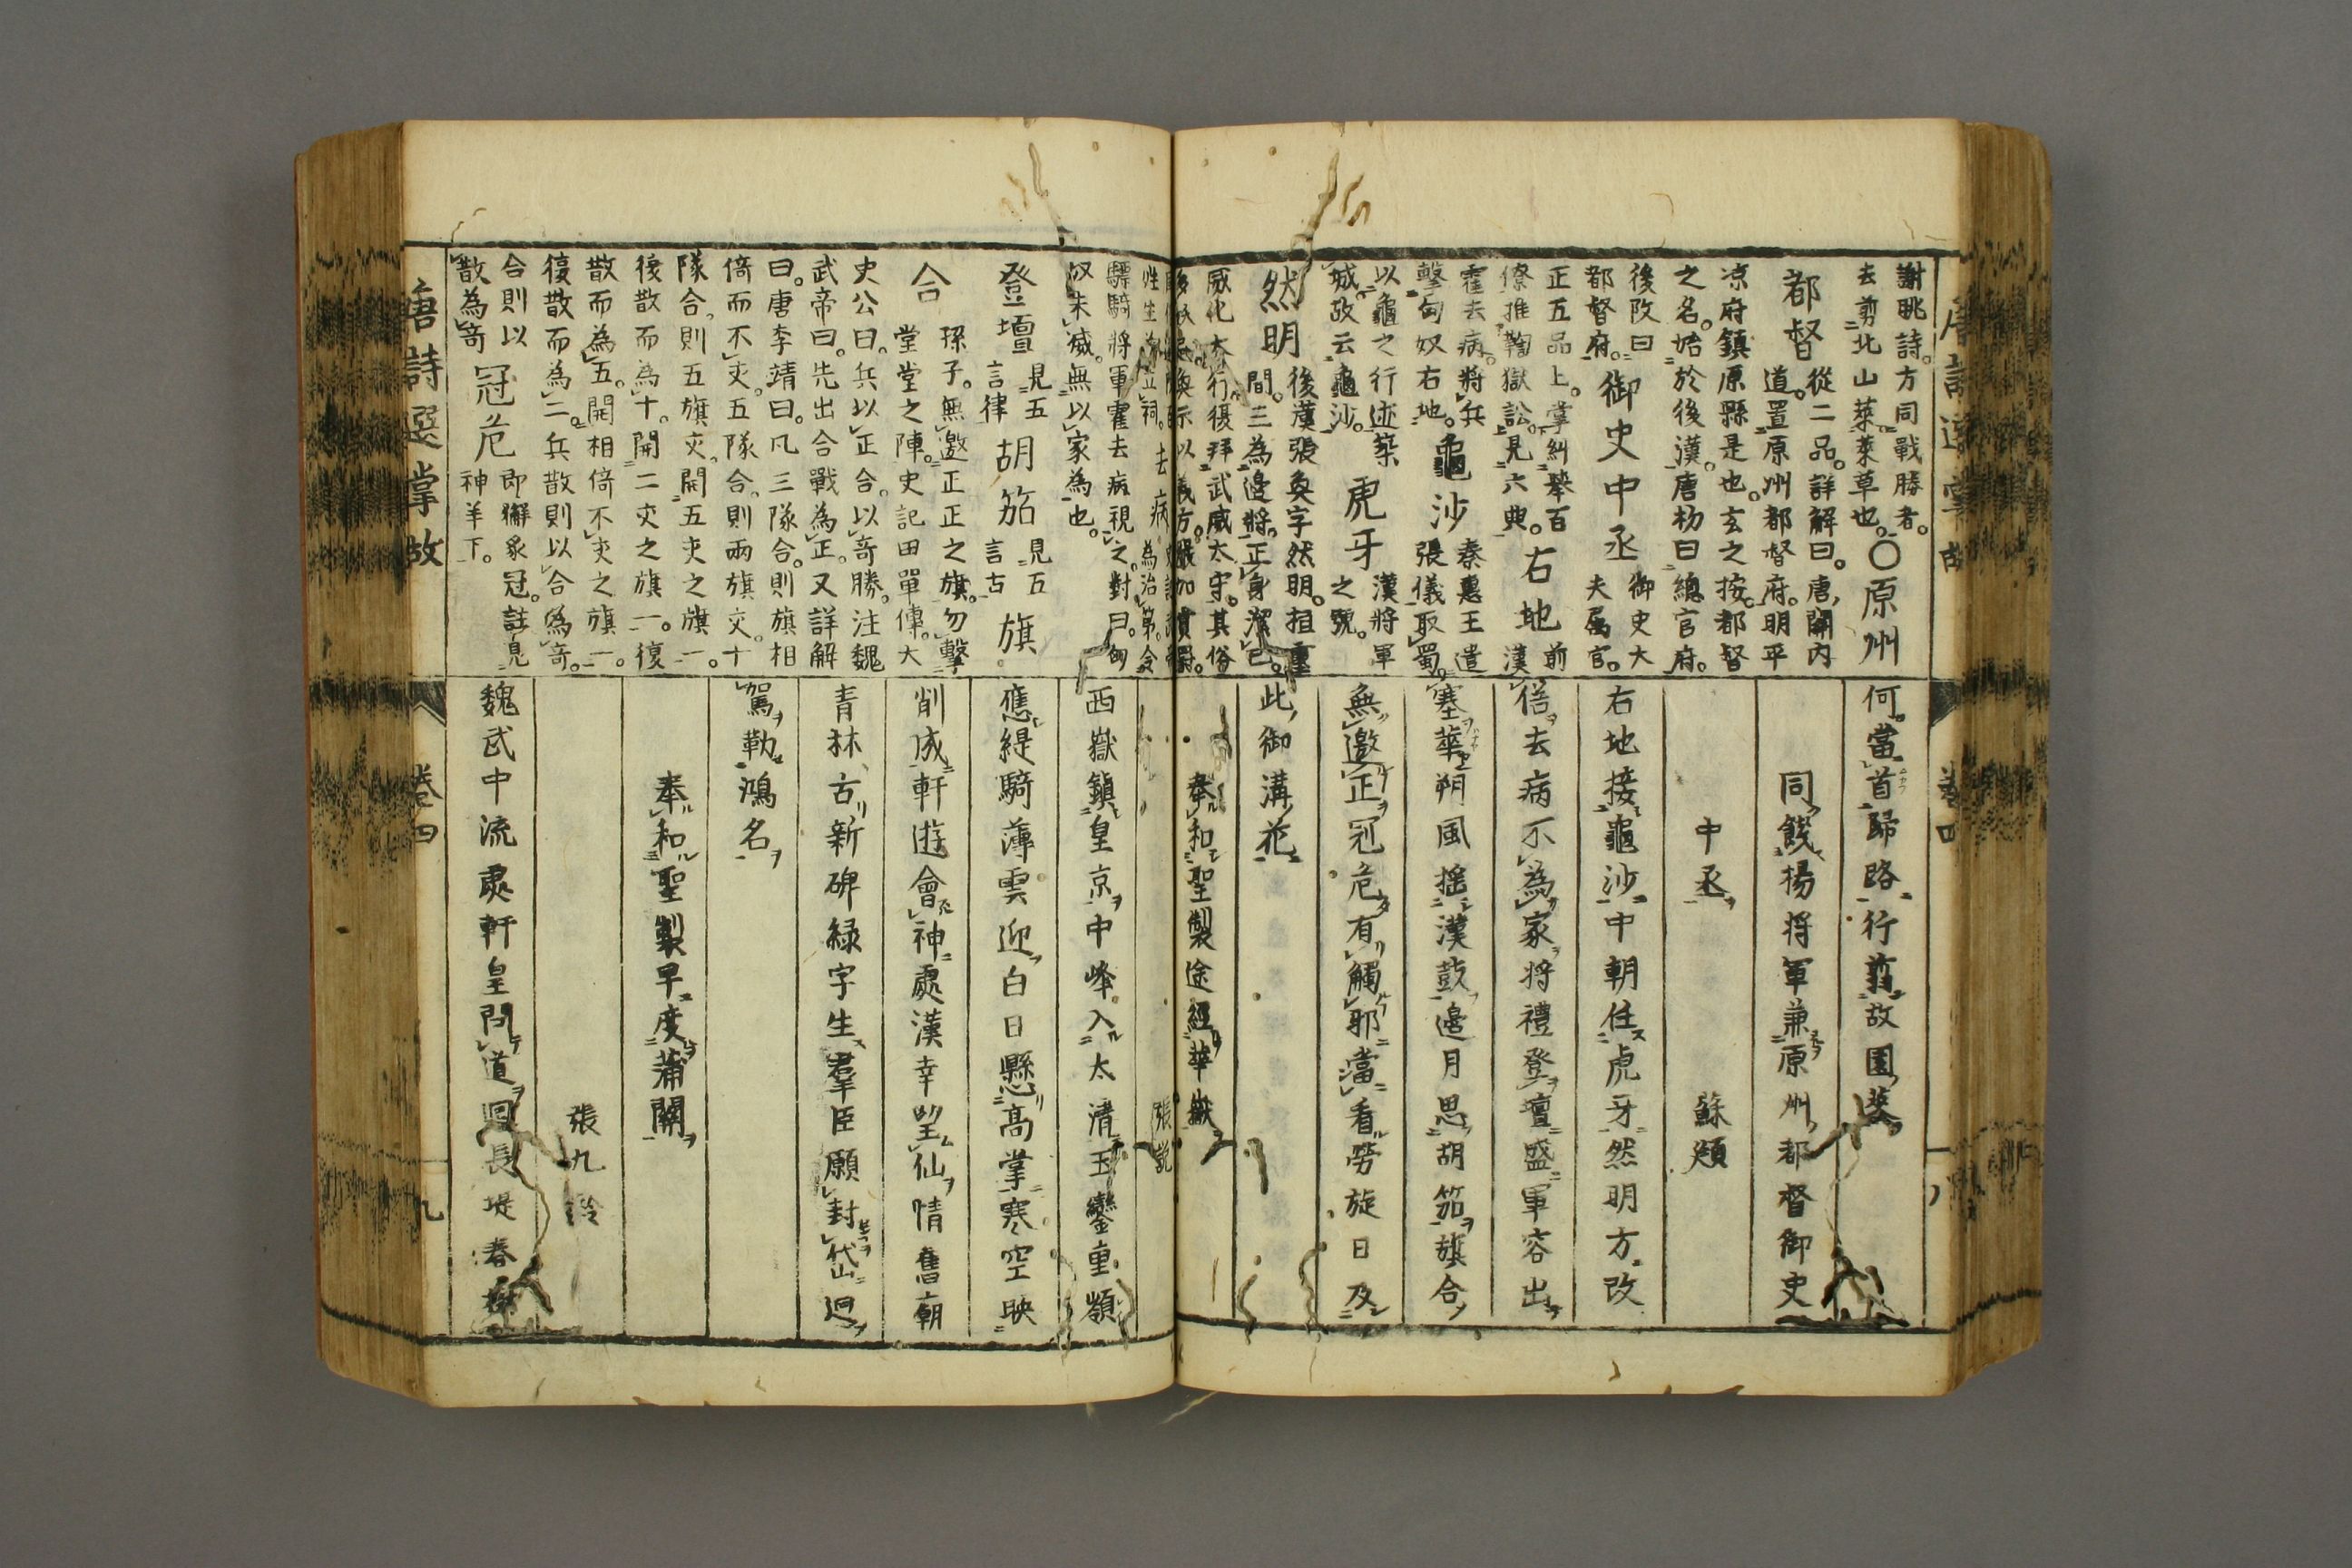 唐詩選掌故
卷四
謝眺詩。方同戰勝者。
去剪北山萊。萊草也。〇原州
都督
從二品。詳解曰。唐開内
道。置原州都督府。明平
凉府鎮原縣是也。玄之按。都督
之名。始於後漢。唐初曰總官府。
後改曰
都督府。
御史中丞
御史大
夫属官。
正五品上。掌糾舉百
僚推鞫獄訟。見六典。
右地
前漢
霍去病。將兵
擊匈奴右地。
龜沙
秦惠王遣
張儀取蜀。
以龜之行迹築
城。故云龜沙。
虎牙
漢將軍
之號。
然明
後漢張奐字然明。
間。三為邊將。正身潔己。
威化大行。復拜武威太守。其俗
何當首歸路行剪故園萊
同餞楊将軍兼原州都督御史
中丞
蘇頲
右地接龜沙中朝任虎牙然明方改
俗去病不為家将禮登壇盛軍容出
塞華朔風揺漢鼓邊月思胡笳旗合
無邀正冠危有觸邪當看勞旋日及
此御溝花
奉和聖製途經華嶽
張説
驃騎將軍霍去病視之。對曰。匈
奴未滅。無以家為也。
登壇
見五
言律
胡笳
見五
言古
旗
合
孫子。無邀正正之旗。勿擊
堂堂之陣。史記田單傳。大
史公曰。兵以正合。以奇勝。注魏
武帝曰。先出合戰為正。又詳解
曰。唐李靖曰。凡三隊合。則旗相
倚而不交。五隊合。則兩旗交。十
隊合。則五旗交。開五交之旗一。
復散而為十。開二交之旗一。復
散而為五。開相倚不交之旗一。
復散而為二。兵散則以合為奇。
合則以
散為奇
冠危
即獬豸冠。註見
神羊下。
西嶽鎮皇京中峰入太清玉鑾重嶺
應緹騎薄雲迎白日懸髙掌寒空映
削成軒遊會神處漢幸望仙情舊廟
青林古新碑緑字生羣臣願封岱廻
駕勒鴻名
奉和聖製早度蒲關
張九齡
魏武中流處軒皇問道回長堤春樹
唐詩選掌故
卷四
九